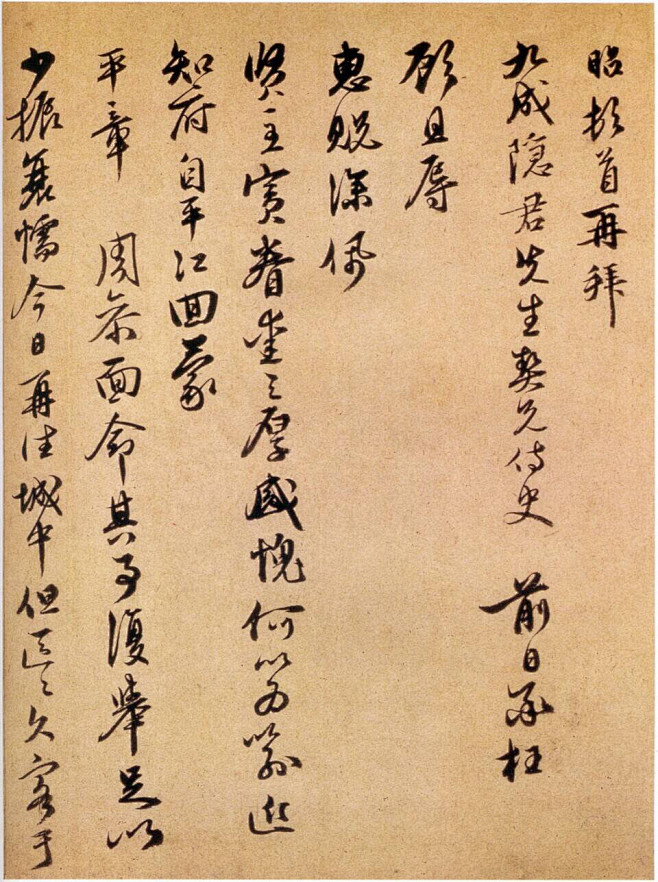 昭頓首再拜
九成隱君先生契兄侍史 前日承枉
顧且辱
惠貺深佩
賢主賓眷愛之厚感愧何以為喻近
知府自平江回蒙
平章 周參面命其事復舉足以
少振衰懦今日再往城中但區〻久客于